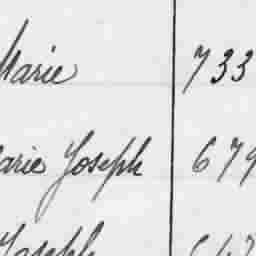 Marie 733
arie Joseph 679
Joseph